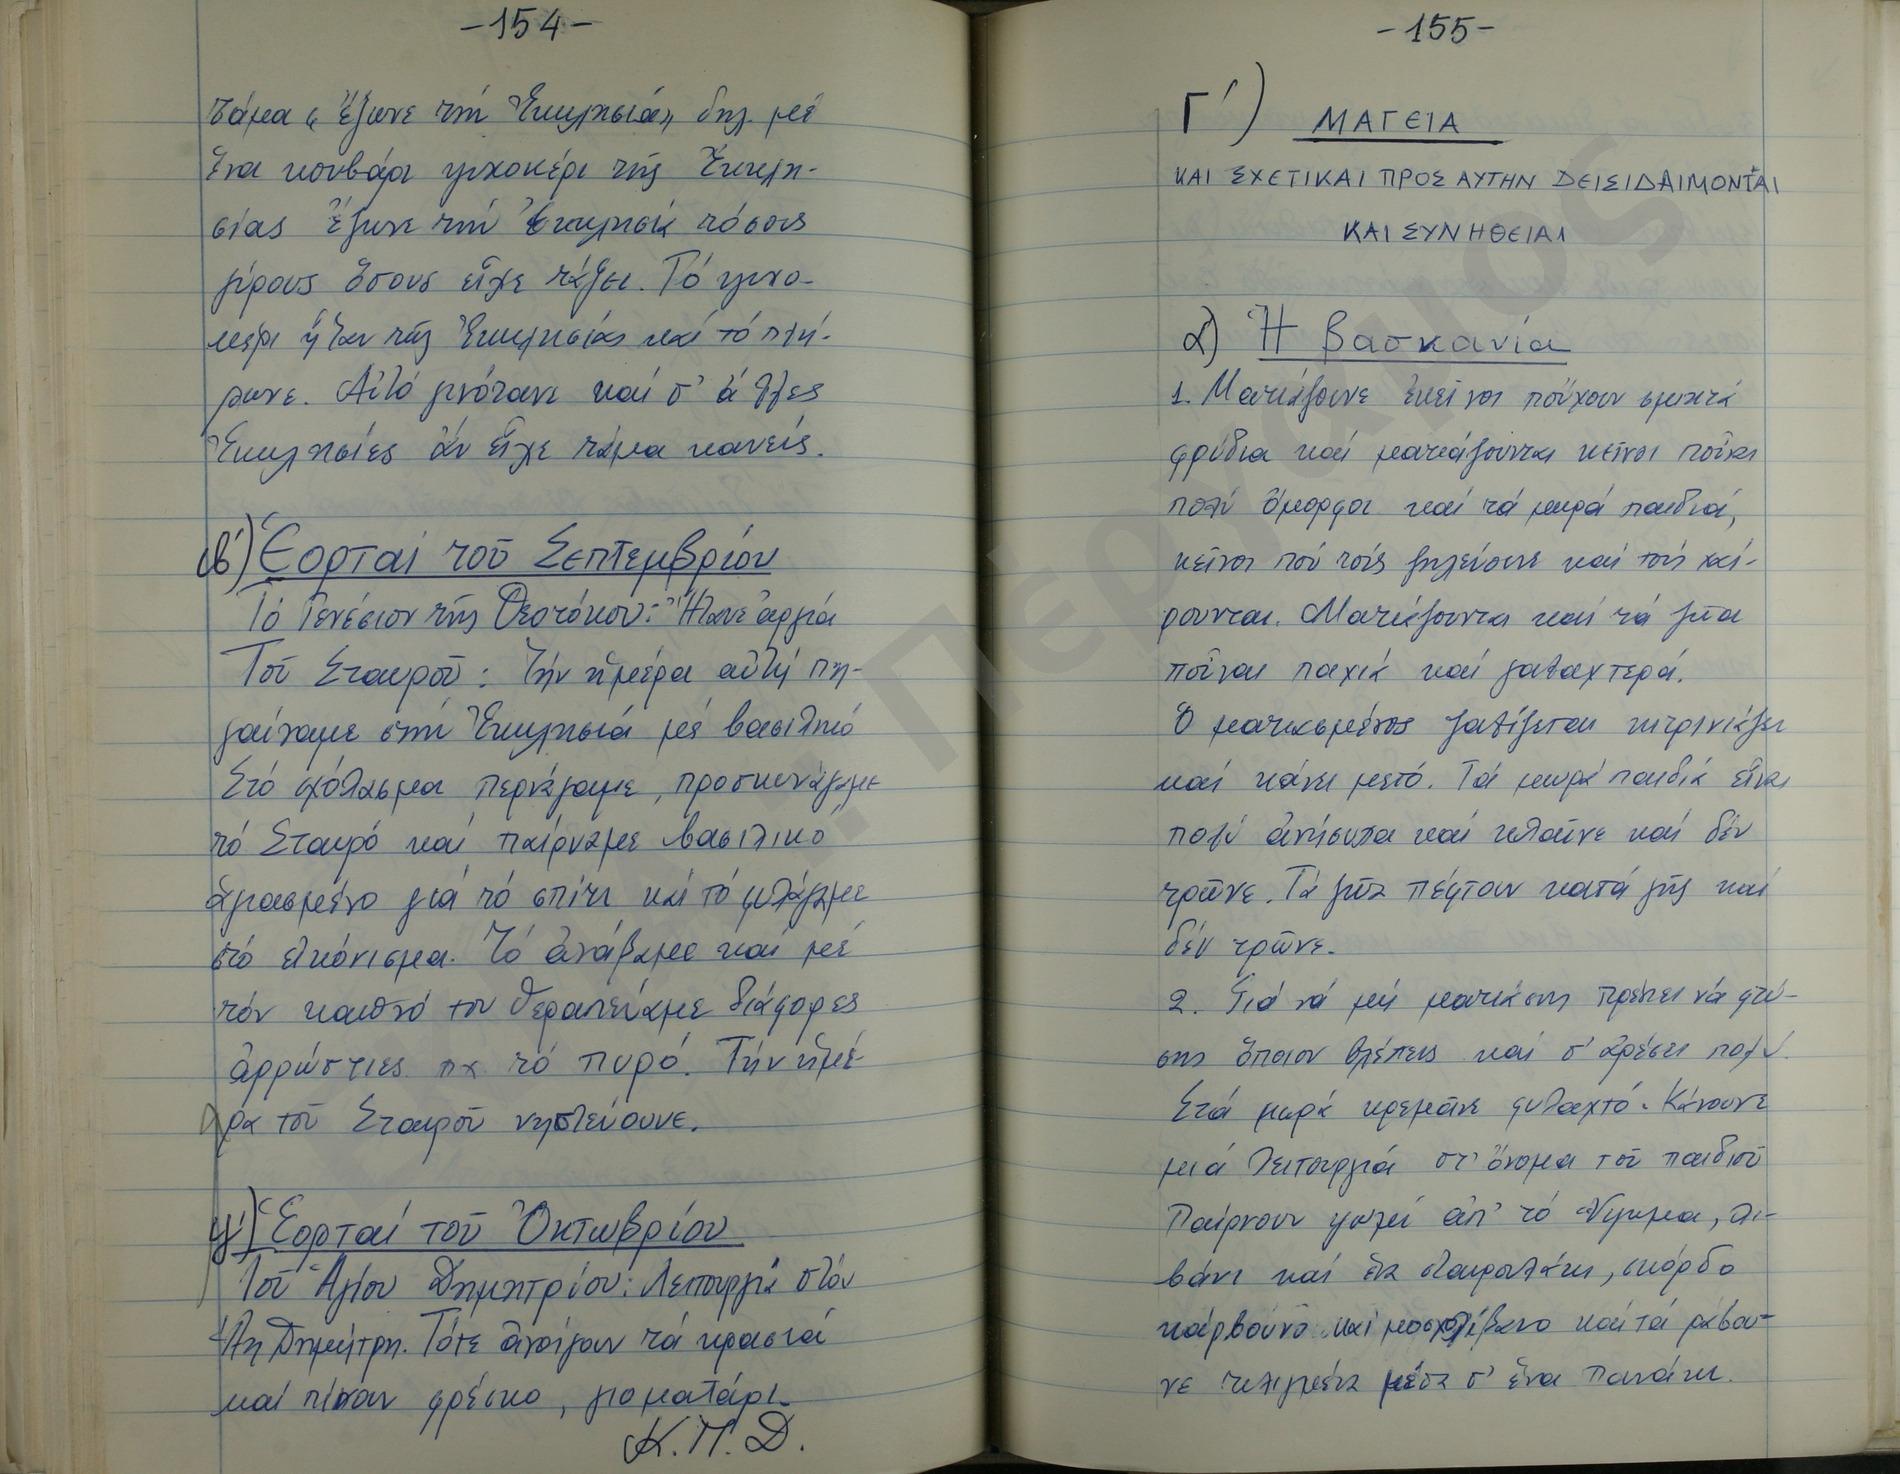 -154-
τάμα "ἔζωνε τήν Ἐκκλησιά" δηλ. μέ
ἕνα κουβάρι ψιχοκέρι τῆς Ἐκκλη-
σίας ἔζωνε τήν Ἐκκλησιά τόσους
γύρους ὅσους εἶχε τάξει. Τό ψιχο-
κέρι ἦταν τῆς Ἐκκλησίας καί τό πλή-
ρωνε. Αὐτό γινότανε καί σ' ἄλλες
Ἐκκλησίες ἄν εἶχε τάμα κανείς.
Ἑορταί τοῦ Σεπτεμβρίου
Τό Γενέσιον τῆς Θεοτόκου: Ἤτανε ἀργία
Τοῦ Σταυροῦ: Τήν ἡμέρα αὐτή πη-
γαίναμε στήν Ἐκκλησιά μέ βασιλικό
Στό σχόλασμα περνάγαμε, προσκυνάγαμε
τό Σταυρό καί παίρναμε βασιλικό
ἁγιασμένο γιά τό σπίτι καί τό φυλάγαμε
στό εἰκόνισμα. Τό ἀνάβαμε καί μέ
τόν καπνό του θεραπεύαμε διάφορες
ἀρρώστιες πχ τό πυρό. Τήν ἡμέ-
ρα τοῦ Σταυροῦ νηστεύουνε.
γ) Ἑορταί τοῦ Ὀκτωβρίου
Τοῦ Ἁγίου Δημητρίου: Λειτουργιά στόν
Ἅη Δημήτρη. Τότε ἀνοίγουν τά κρασιά
καί πίναν φρέσκο, γιοματάρι.
Κ.Π.Δ.
-155-
Γ') ΜΑΓΕΙΑ
ΚΑΙ ΣΧΕΤΙΚΑΙ ΠΡΟΣ ΑΥΤΗΝ ΔΕΙΣΙΔΑΙΜΟΝΙΑΙ
ΚΑΙ ΣΥΝΗΘΕΙΑΙ
α) Ἡ βασκανία
1. Ματιάζουνε ἐκεῖνοι πὄχουν σμιχτά
φρύδια καί ματιάζουνται κεῖνοι ποῦναι
πολύ ὄμορφοι καί τά μικρά παιδιά,
κεῖνοι πού τούς ζηλεύουνε καί τούς χαί-
ρουνται. Ματιάζουνται καί τά ζῶα
ποῦναι παχιά καί γαλαχτερά.
Ὁ ματιασμένος ζαλίζεται κιτρινιάζει
καί κάνει μετό. Τά μικρά παιδιά εἶναι
πολύ ἀνήσυχα καί κλαῖνε καί δέν
τρῶνε. Τά ζῶα πέφτουν κατά γῆς καί
δέν τρῶνε.
2. Γιά νά μή ματιάσης πρέπει νά φτύ-
σης ὅποιον βλέπεις καί σ' ἀρέσει πολύ.
Στά μικρά κρεμᾶνε φυλαχτό. Κάνουνε
μιά λειτουργιά στ' ὄνομα τοῦ παιδιοῦ
Παίρνουν ψωμί ἀπ' τό ὕψωμα, λι-
βάνι καί ἕνα σταυρουλάκι, σκόρδο
κάρβουνο καί μοσχολίβανο καί τά ράβου-
νε τυλιγμένα μέσα σ' ἕνα πανάκι.